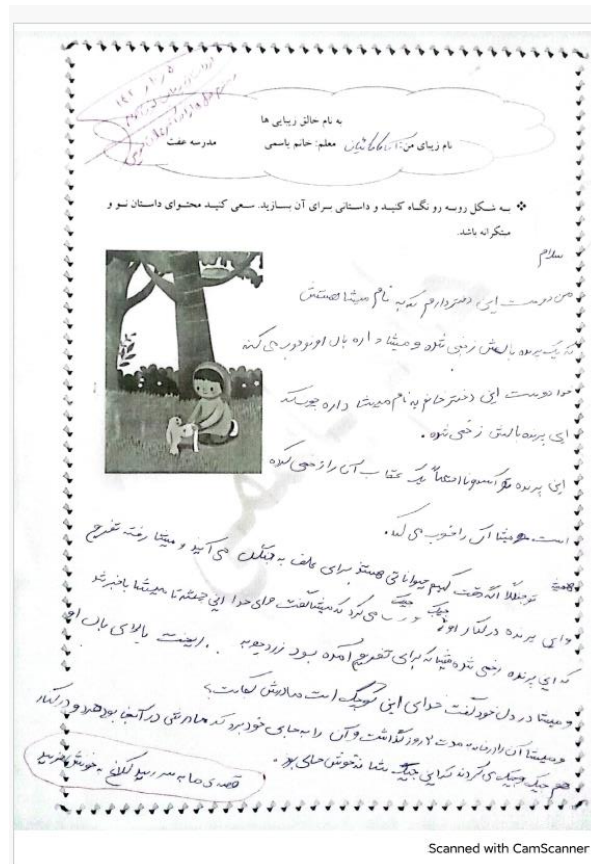 به نام خالق زیبایی ها
نام زیبای من: معلم: خانم یاسمی مدرسه عفت
به شکل روبه رو نگاه کنید و داستانی برای آن بسازید. سعی کنید محتوای داستان نو و
مبتکرانه باشد.
سلام
من دوست این دختر دارم که به نام میشا هستش
که یک پرنده بالش زخمی شده و میشا داره بال اونو خوب می کنه
دوست این دختر خانم به نام میشا داره
این پرنده بالش زخمی شده.
این پرنده یک عقاب آن را زخمی کرده
است میشا آن را خوب می کند.
حیواناتی هستند برای علف به جنگل می آیند و میشا رفته تفریح
و این پرنده در کنار او جیک جیک می کرد که میشا گفت وای خدا این چیشده تا میشا باخبر شد
که این پرنده زخمی شده میشا که برای تفریح آمده بود زردچوبه ریخت بالای بال او
و میشا در دل خود گفت خدای این کوچیک است مادرش کجاست؟
و میشا آن را در خانه به مدت ۲ روز گذاشت و آن را به جای خود برد که مادرش در آنجا بود هر دو در کنار
هم جیک جیک می کردند که این جیک شا نه خوش حالی بود.
قصه ی ما به سر رسید کلاغ به خونش نرسید
Scanned with CamScanner